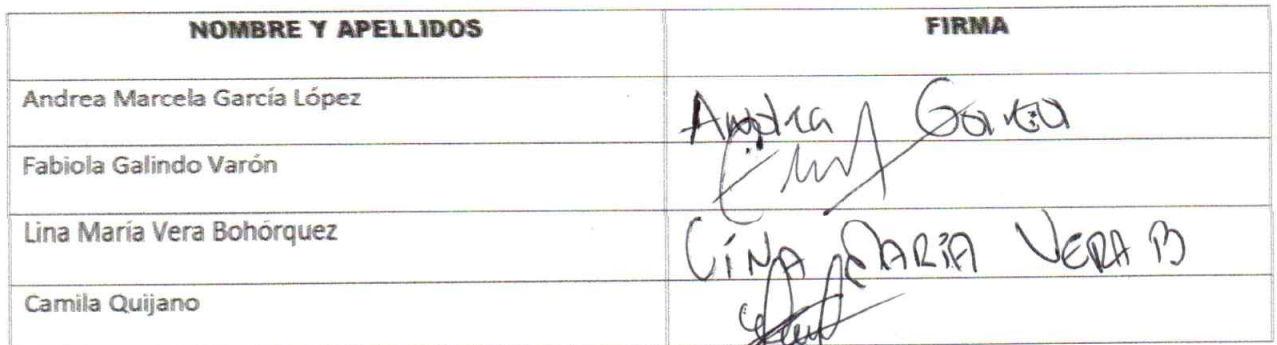 NOMBRE Y APELLIDOS FIRMA
Andrea Marcela García López Andrea García
Fabiola Galindo Varón
Lina María Vera Bohórquez LINA MARIA VERA B
Camila Quijano